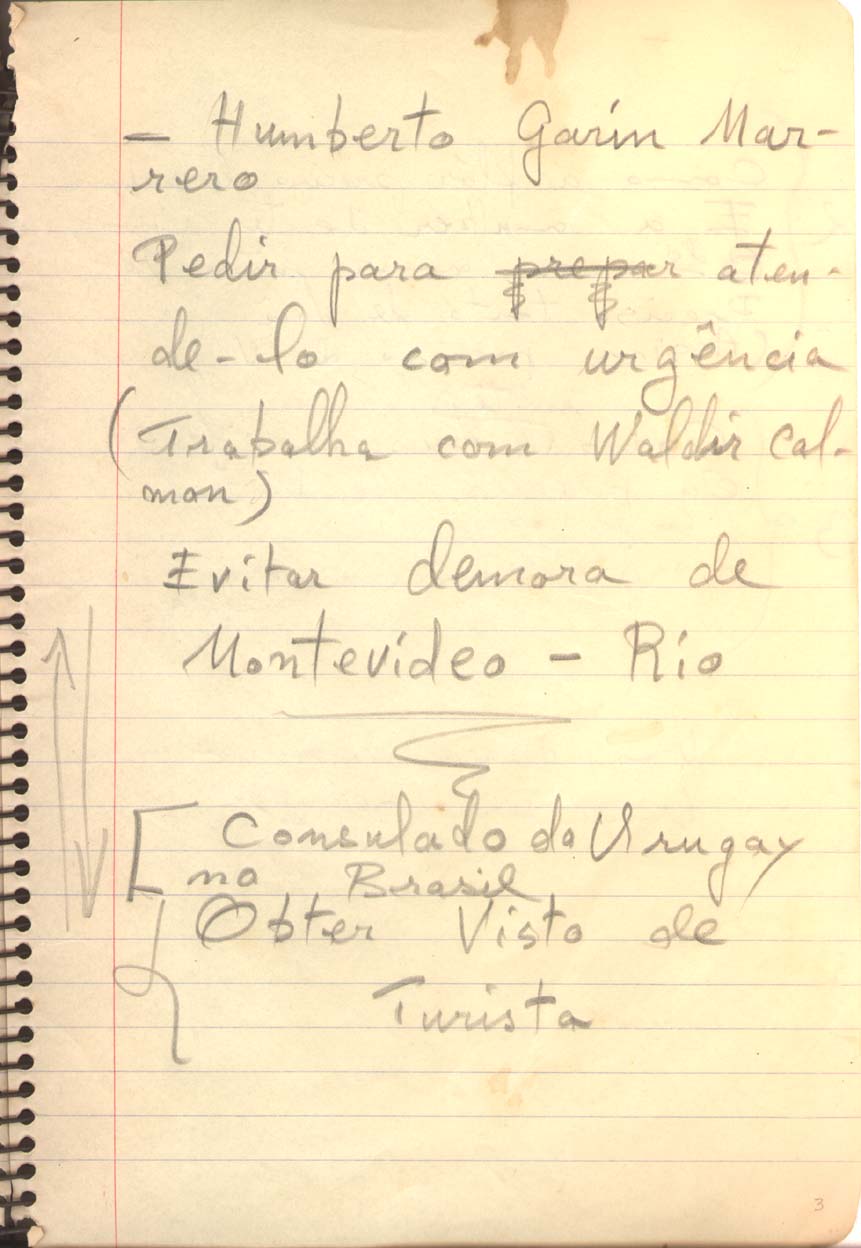 – Humberto Garín Mar-
rero
Pedir para prepar aten-
de-lo com urgência
(Trabalha com Waldir Cal-
mon)
Evitar demora de
Montevídeo – Rio
Consulado do Urugay
no Brasil
Obter Visto de
Turista
3